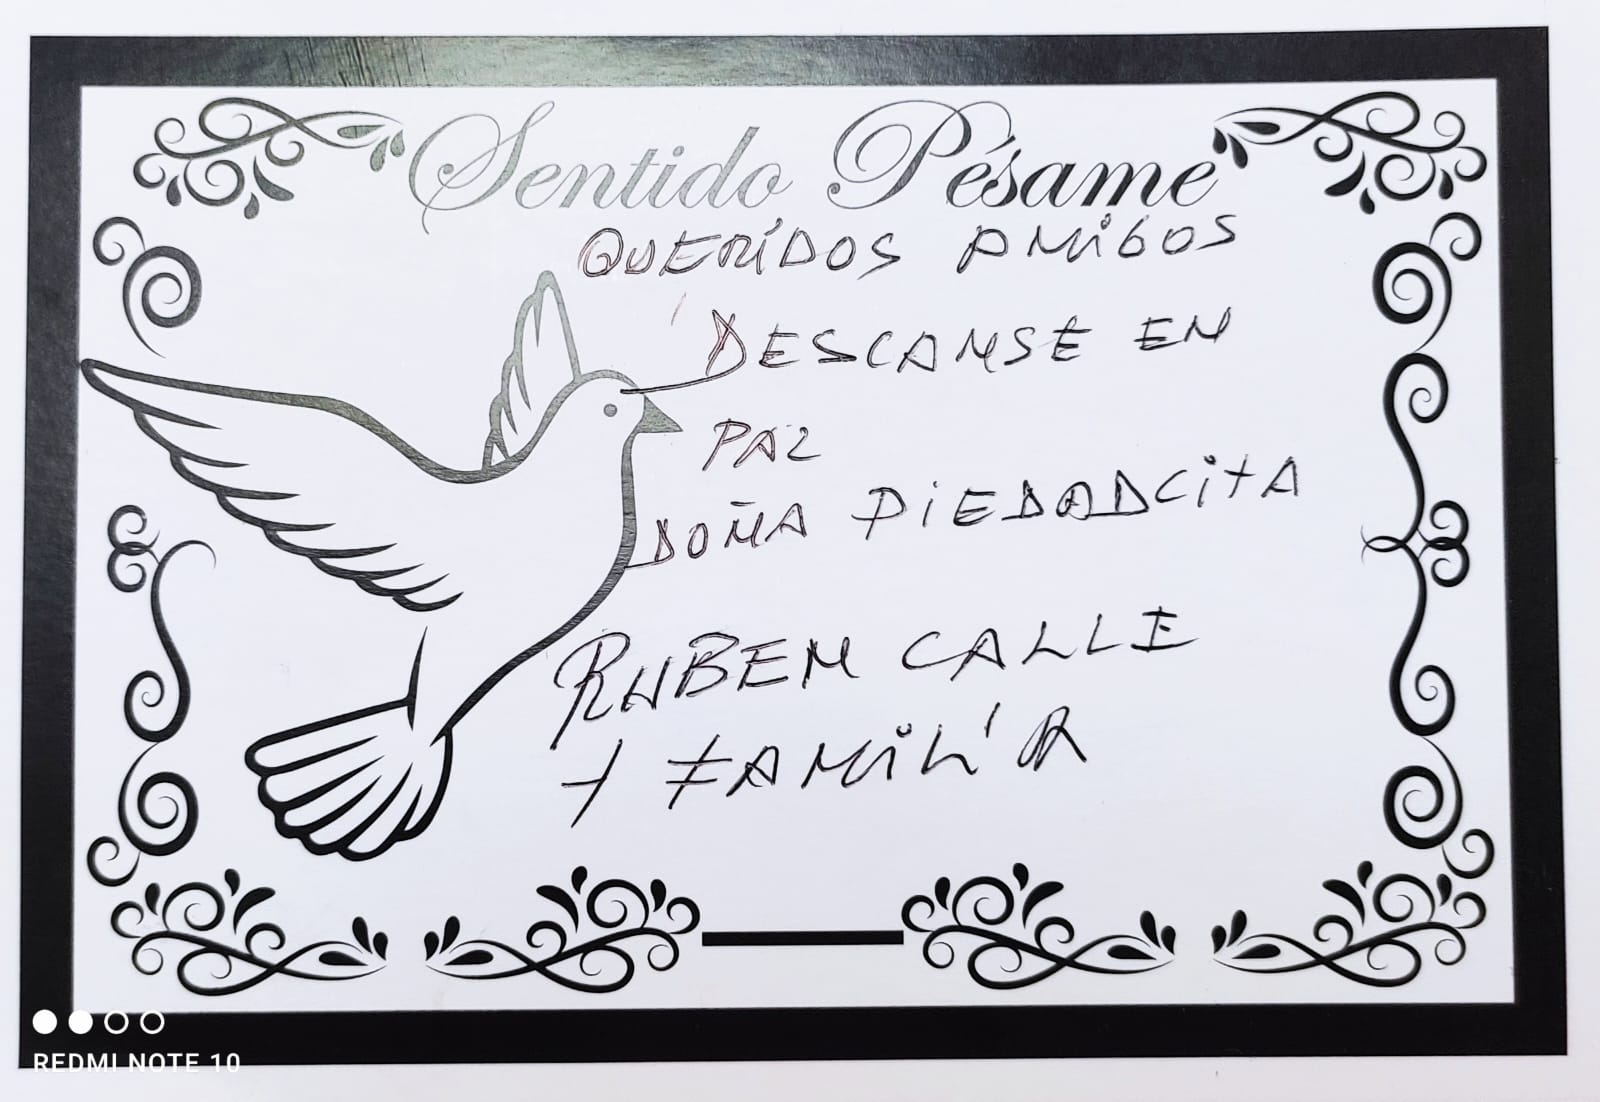 Sentido Pésame
QUERIDOS AMIGOS
DESCANSE EN
PAZ
DOÑA PIEDADCITA
RUBEN CALLE
Y FAMILIA
REDMI NOTE 10